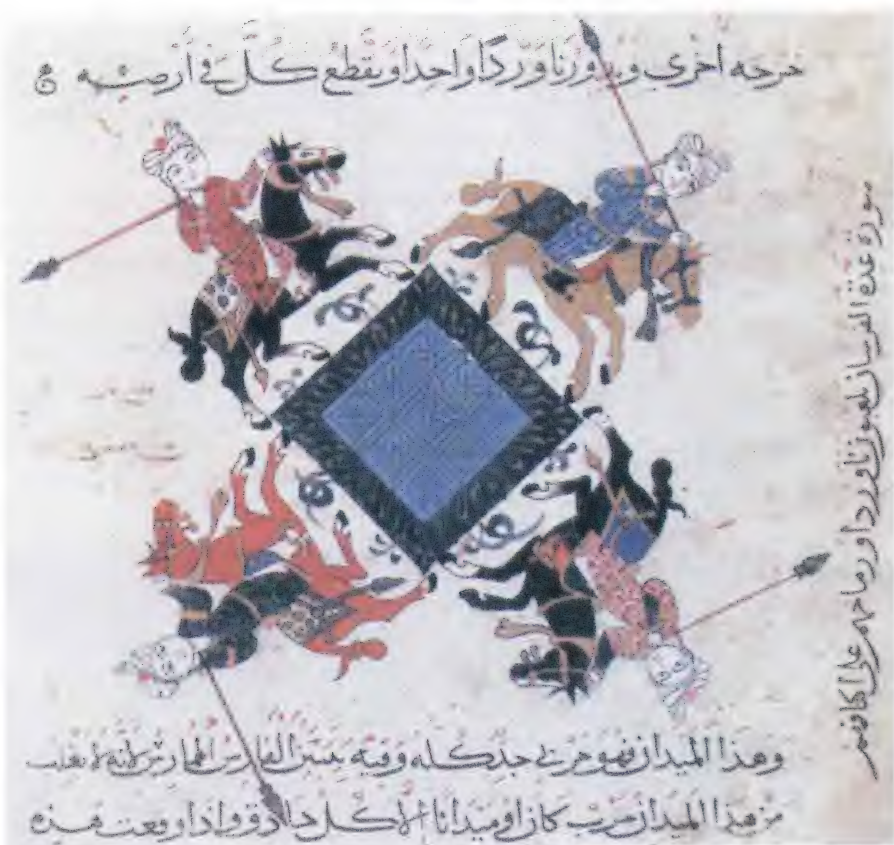 خرجه اخرى ويدورنا وردا واحدا ويقطع كل فى ارضه
صورة عدة الفرسان يلعبون ناوردا ورماحهم على اكتافهم
وهذا الميدان فهو حرب جد كله وفيه يتبين الفارس لانه لا
من هذا الميدان حرب كان او ميدانا الا كل حاذق واذا وقعت هذه